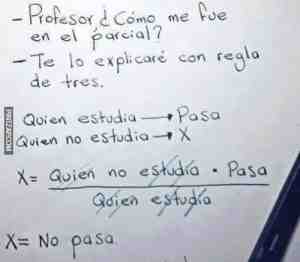 - Profesor ¿Cómo me fue
en el parcial?
- Te lo explicaré con regla
de tres.
Quien estudia → Pasa
Quien no estudia → X
X= Quien no estudia · Pasa
Quien estudia
X= No pasa